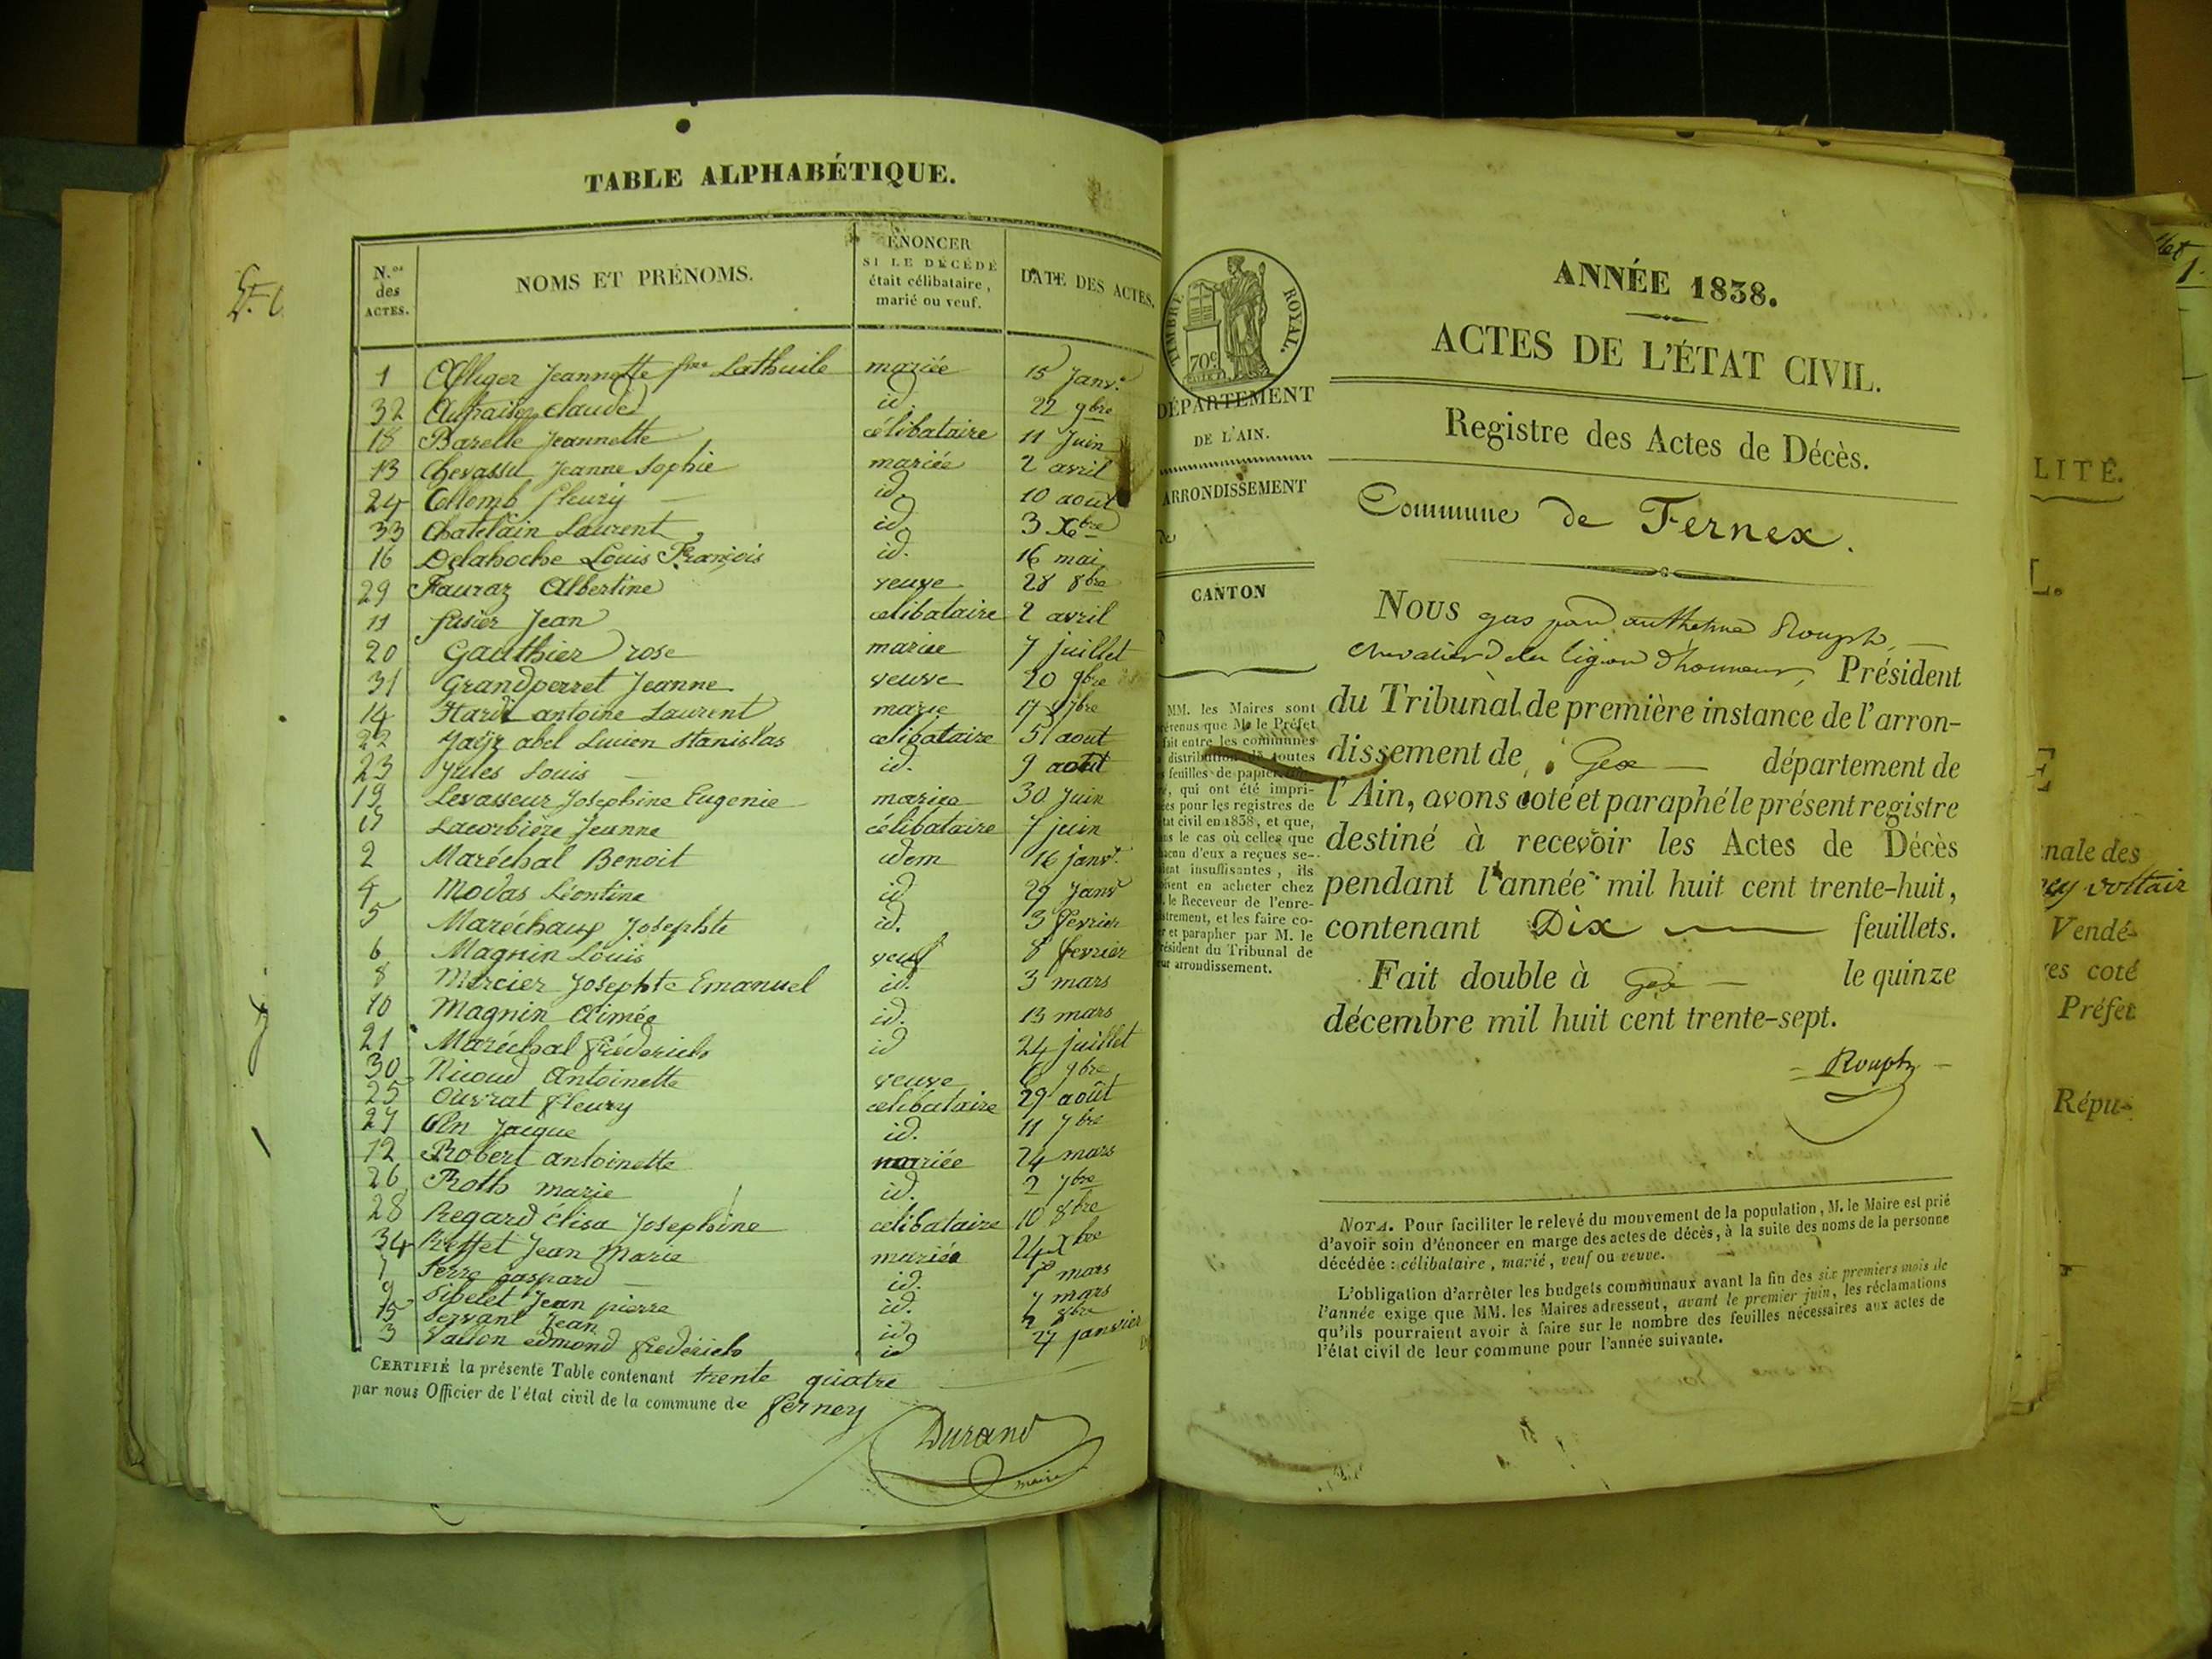 TABLE ALPHABÉTIQUE.
N.os des ACTES.
NOMS ET PRÉNOMS.
ÉNONCER SI LE DÉCÉDÉ était célibataire, marié ou veuf.
DATE DES ACTES.
1 Alliger Jeannette fme Lathuile mariée 15 Janv.
32 claude id. 22 9bre
18 Barelle Jeannette célibataire 11 Juin
13 Chevassu Jeanne Sophie mariée 2 avril
24 Collomb fleury id. 10 aout
33 Chatelain Laurent id. 3 Xbre
16 Louis François id. 16 mai
29 Fauraz Albertine veuve 28 8bre
11 fusier Jean celibataire 2 avril
20 Gauthier rose mariee 7 juillet
31 Grandperret Jeanne veuve 20 9bre
14 antoine Laurent marie 17
22 abel Lucien Stanislas celibataire 31 aout
23 Jules Louis id. 9 aout
19 Levasseur Josephine Eugenie mariee 30 Juin
17 Lacorbière Jeanne célibataire 7 juin
2 Maréchal Benoit idem 16 janvr.
4 Modas Léontine id 29 Janvr
5 Maréchaux Josephte id. 3 fevrier
6 Magnin Louis veuf 8 fevrier
8 Mercier Josephte Emanuel id. 3 mars
10 Magnin Aimée id. 13 mars
21 Maréchal frédérich id 24 juillet
30 Nicoud Antoinette veuve 6 9bre
25 Ouvrat fleury celibataire 29 août
27 Jacque id. 11 7bre
12 Robert antoinette mariée 24 mars
26 Roth marie id. 2 7bre
28 Regard élisa Josephine celibataire 10 8bre
34 Jean Marie mariée 24 Xbre
7 Serre gaspard id. mars
9 Sibelet Jean pierre id. 7 mars
15 Servant Jean id. 2 8bre
3 edmond frederich id 27 janvier
CERTIFIÉ la présente Table contenant trente quatre
par nous Officier de l'état civil de la commune de ferney
Durand
maire
TIMBRE ROYAL.
70c
DÉPARTEMENT
DE L'AIN.
ARRONDISSEMENT
de
CANTON
MM. les Maires sont
que M. le Préfet
fait entre les communes
distribution de toutes
feuilles de papier
, qui ont été impri-
pour les registres de
civil en 1838, et que,
le cas où celles que
d'eux a reçues se-
insuffisantes, ils
en acheter chez
le Receveur de l'enre-
, et les faire co-
et parapher par M. le
du Tribunal de
arrondissement.
ANNÉE 1838.
ACTES DE L'ÉTAT CIVIL.
Registre des Actes de Décès.
Commune de Fernex.
NOUS gaspard anthelme Rouph,
chevalier de la légion d'honneur, Président
du Tribunal de première instance de l'arron-
dissement de Gex département de
l'Ain, avons coté et paraphé le présent registre
destiné à recevoir les Actes de Décès
pendant l'année mil huit cent trente-huit,
contenant Dix feuillets.
Fait double à Gex le quinze
décembre mil huit cent trente-sept.
Rouph
NOTA. Pour faciliter le relevé du mouvement de la population, M. le Maire est prié
d'avoir soin d'énoncer en marge des actes de décès, à la suite des noms de la personne
décédée : célibataire, marié, veuf ou veuve.
L'obligation d'arrêter les budgets communaux avant la fin des six premiers mois de
l'année exige que MM. les Maires adressent, avant le premier juin, les réclamations
qu'ils pourraient avoir à faire sur le nombre des feuilles nécessaires aux actes de
l'état civil de leur commune pour l'année suivante.
LITÉ.
nale des
voltair
Vendé-
es coté
Préfet
Répu-